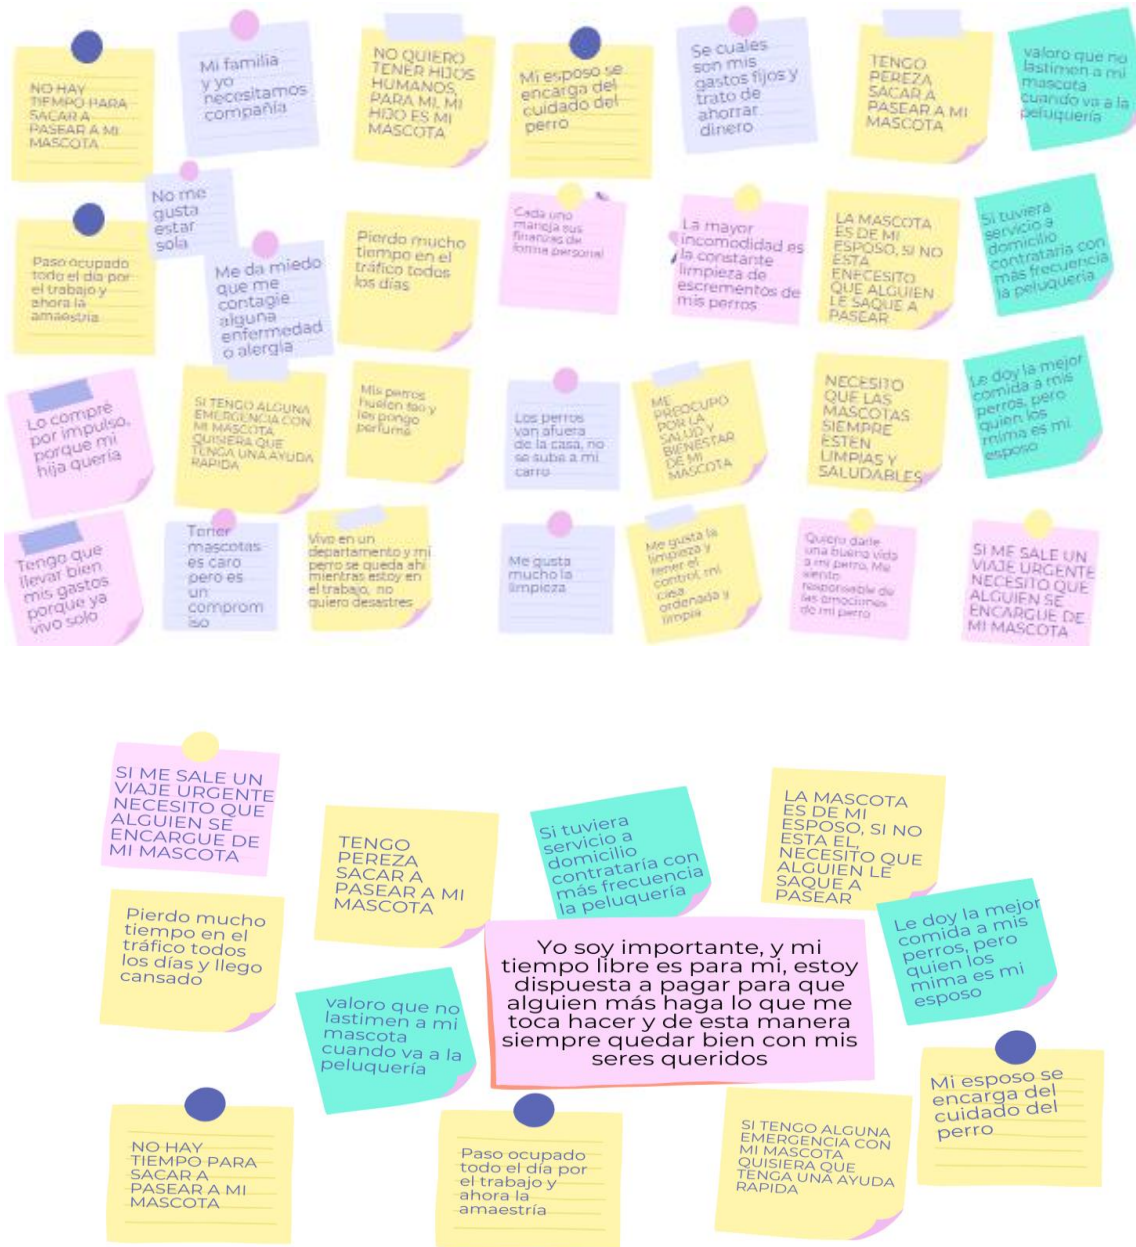 NO HAY
TIEMPO PARA
SACAR A
PASEAR A MI
MASCOTA
Mi familia
y yo
necesitamos
compañía
NO QUIERO
TENER HIJOS
HUMANOS,
PARA MI, MI
HIJO ES MI
MASCOTA
Mi esposo se
encarga del
cuidado del
perro
Se cuales
son mis
gastos fijos y
trato de
ahorrar
dinero
TENGO
PEREZA
SACAR A
PASEAR A MI
MASCOTA
valoro que no
lastimen a mi
mascota
cuando va a la
peluquería
Paso ocupado
todo el día por
el trabajo y
ahora la
amaestría
No me
gusta
estar
sola
Me da miedo
que me
contagie
alguna
enfermedad
o alergia
Pierdo mucho
tiempo en el
tráfico todos
los días
Cada uno
maneja sus
finanzas de
forma personal
La mayor
incomodidad es
la constante
limpieza de
escrementos de
mis perros
LA MASCOTA
ES DE MI
ESPOSO, SI NO
ESTA
ENECESITO
QUE ALGUIEN
LE SAQUE A
PASEAR
Si tuviera
servicio a
domicilio
contrataría con
más frecuencia
la peluquería
Lo compré
por impulso,
porque mi
hija quería
SI TENGO ALGUNA
EMERGENCIA CON
MI MASCOTA
QUISIERA QUE
TENGA UNA AYUDA
RAPIDA
Mis perros
huelen feo y
les pongo
perfume
Los perros
van afuera
de la casa, no
se sube a mi
carro
ME
PREOCUPO
POR LA
SALUD Y
BIENESTAR
DE MI
MASCOTA
NECESITO
QUE LAS
MASCOTAS
SIEMPRE
ESTEN
LIMPIAS Y
SALUDABLES
Le doy la mejor
comida a mis
perros, pero
quien los
mima es mi
esposo
Tengo que
llevar bien
mis gastos
porque ya
vivo solo
Tener
mascotas
es caro
pero es
un
comprom
iso
Vivo en un
departamento y mi
perro se queda ahí
mientras estoy en
el trabajo, no
quiero desastres
Me gusta
mucho la
limpieza
Me gusta la
limpieza y
tener el
control, mi
casa
ordenada y
limpia
Quiero darle
una buena vida
a mi perro, Me
siento
responsable de
las emociones
de mi perro
SI ME SALE UN
VIAJE URGENTE
NECESITO QUE
ALGUIEN SE
ENCARGUE DE
MI MASCOTA
SI ME SALE UN
VIAJE URGENTE
NECESITO QUE
ALGUIEN SE
ENCARGUE DE
MI MASCOTA
TENGO
PEREZA
SACAR A
PASEAR A MI
MASCOTA
Si tuviera
servicio a
domicilio
contrataría con
más frecuencia
la peluquería
LA MASCOTA
ES DE MI
ESPOSO, SI NO
ESTA EL,
NECESITO QUE
ALGUIEN LE
SAQUE A
PASEAR
Pierdo mucho
tiempo en el
tráfico todos
los días y llego
cansado
valoro que no
lastimen a mi
mascota
cuando va a la
peluquería
Yo soy importante, y mi
tiempo libre es para mi, estoy
dispuesta a pagar para que
alguien más haga lo que me
toca hacer y de esta manera
siempre quedar bien con mis
seres queridos
Le doy la mejor
comida a mis
perros, pero
quien los
mima es mi
esposo
NO HAY
TIEMPO PARA
SACAR A
PASEAR A MI
MASCOTA
Paso ocupado
todo el día por
el trabajo y
ahora la
amaestría
SI TENGO ALGUNA
EMERGENCIA CON
MI MASCOTA
QUISIERA QUE
TENGA UNA AYUDA
RAPIDA
Mi esposo se
encarga del
cuidado del
perro